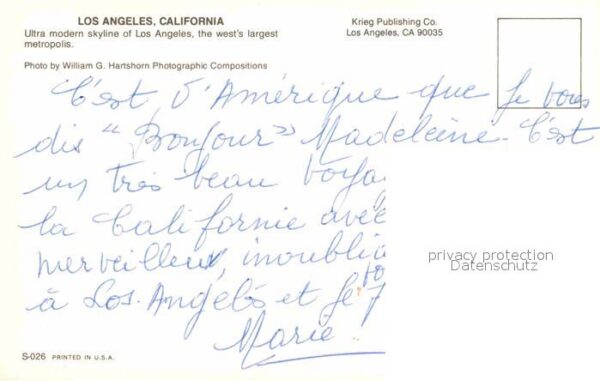 LOS ANGELES, CALIFORNIA
Ultra modern skyline of Los Angeles, the west's largest
metropolis.
Photo by William G. Hartshorn Photographic Compositions
Krieg Publishing Co.
Los Angeles, CA 90035
C'est d'Amérique que je vous
dis "Bonjour" Madeleine. C'est
un très beau voya
la Californie avec
merveilleux, inoublia
à Los Angelès et je
Marie
privacy protection
Datenschutz
S-026 PRINTED IN U.S.A.